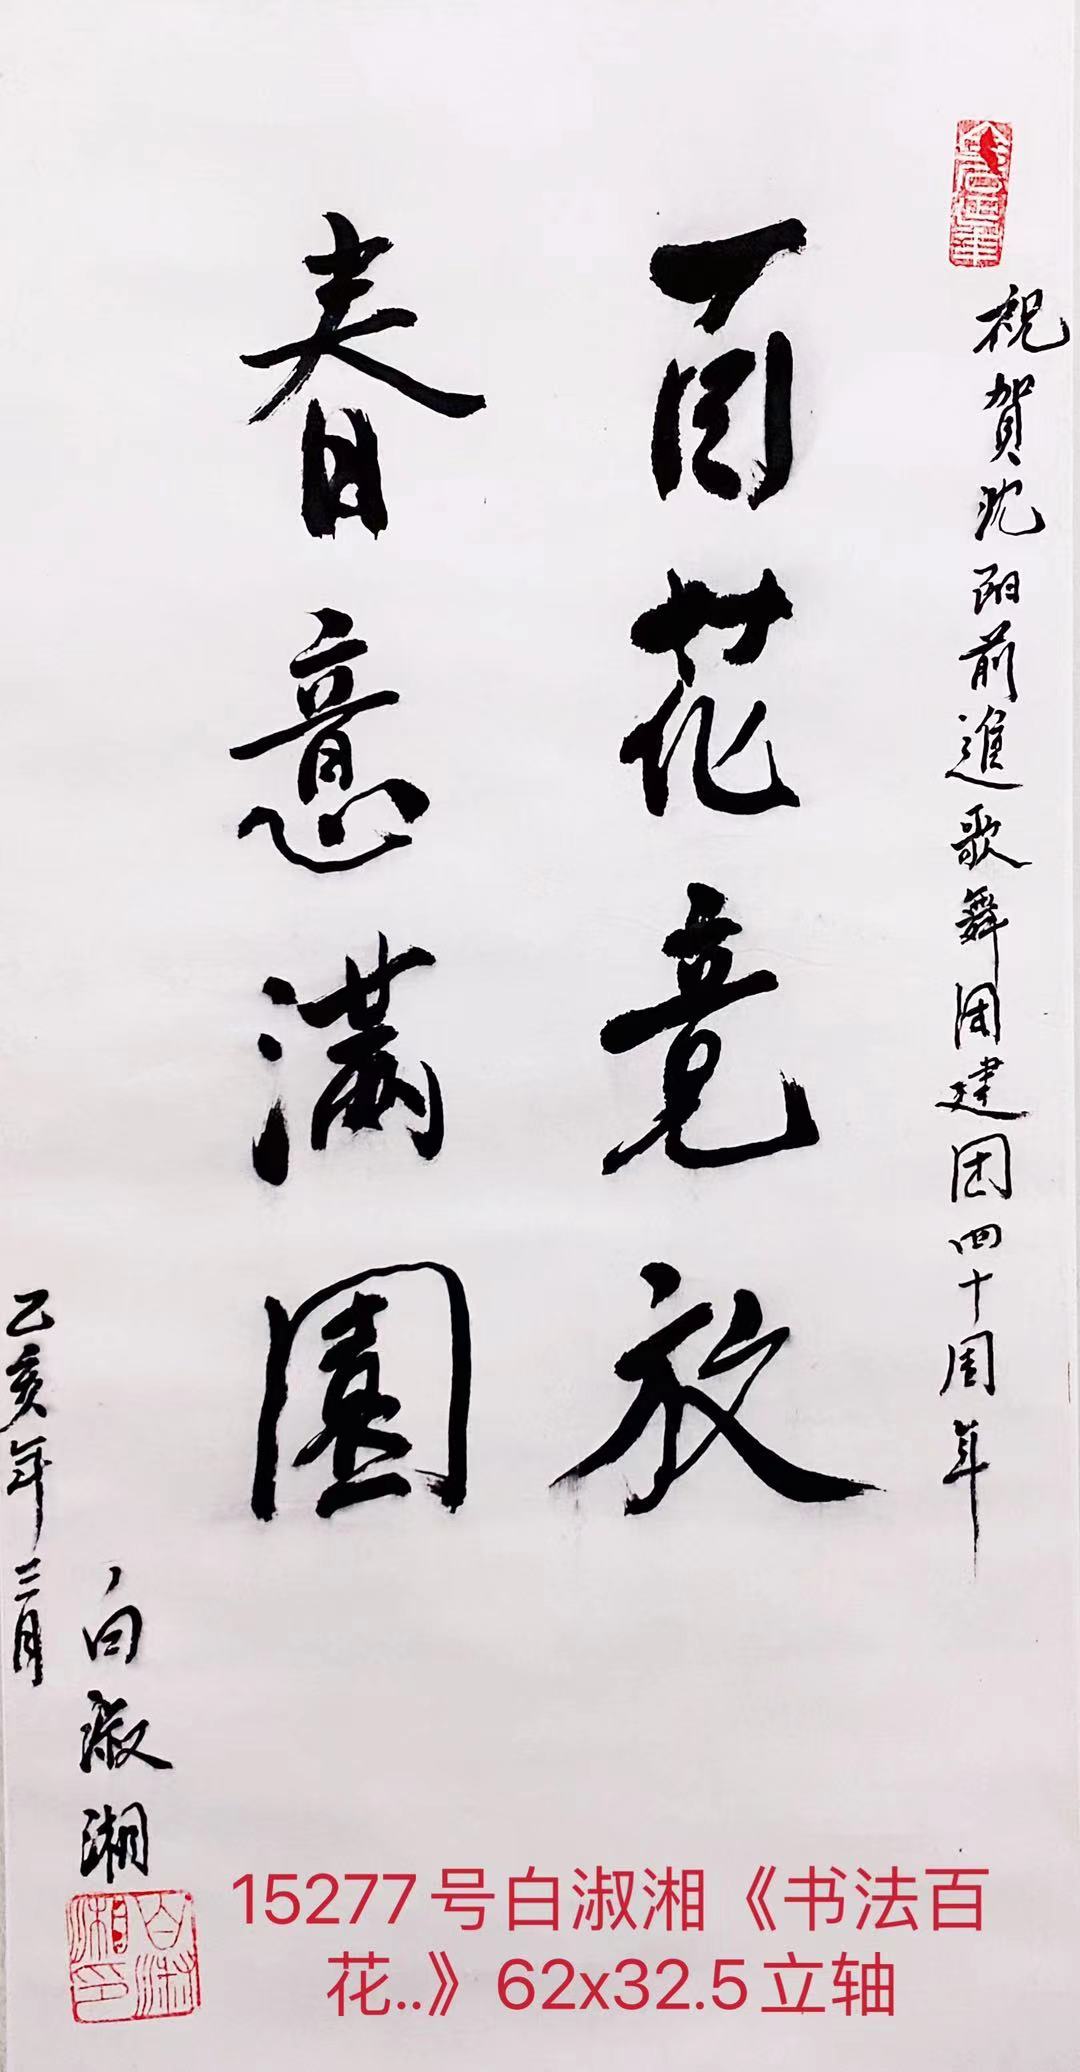 祝賀沈阳前進歌舞團建团四十周年
百花竞放
春意滿園
乙亥年三月
白淑湘
白淑湘印
15277号白淑湘《书法百
花..》62x32.5立轴